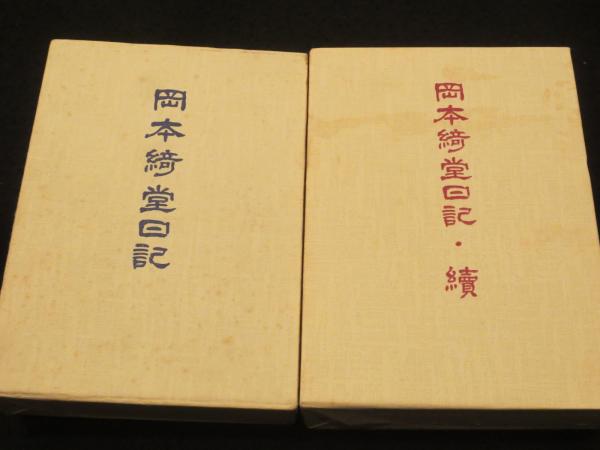 岡本綺堂日記
岡本綺堂日記・續